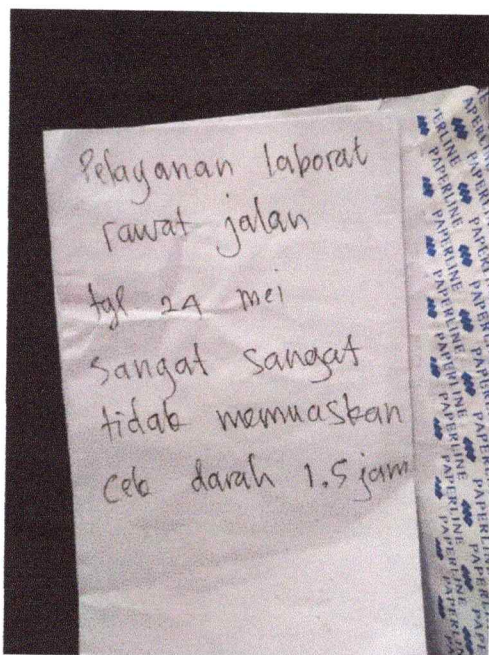 Pelayanan laborat
rawat jalan
tgl 24 mei
sangat sangat
tidak memuaskan
cek darah 1.5 jam
PAPERLINE
PAPERLINE
PAPERLINE
PAPERLINE
PAPERLINE
PAPERLINE
PAPERLINE